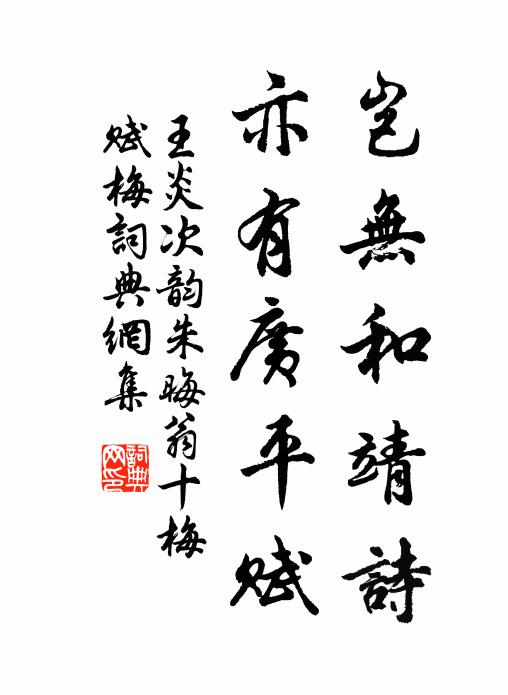 豈無和靖詩
亦有廣平賦
王炎次韵朱晦翁十梅
赋梅詞典網集
詞典网印